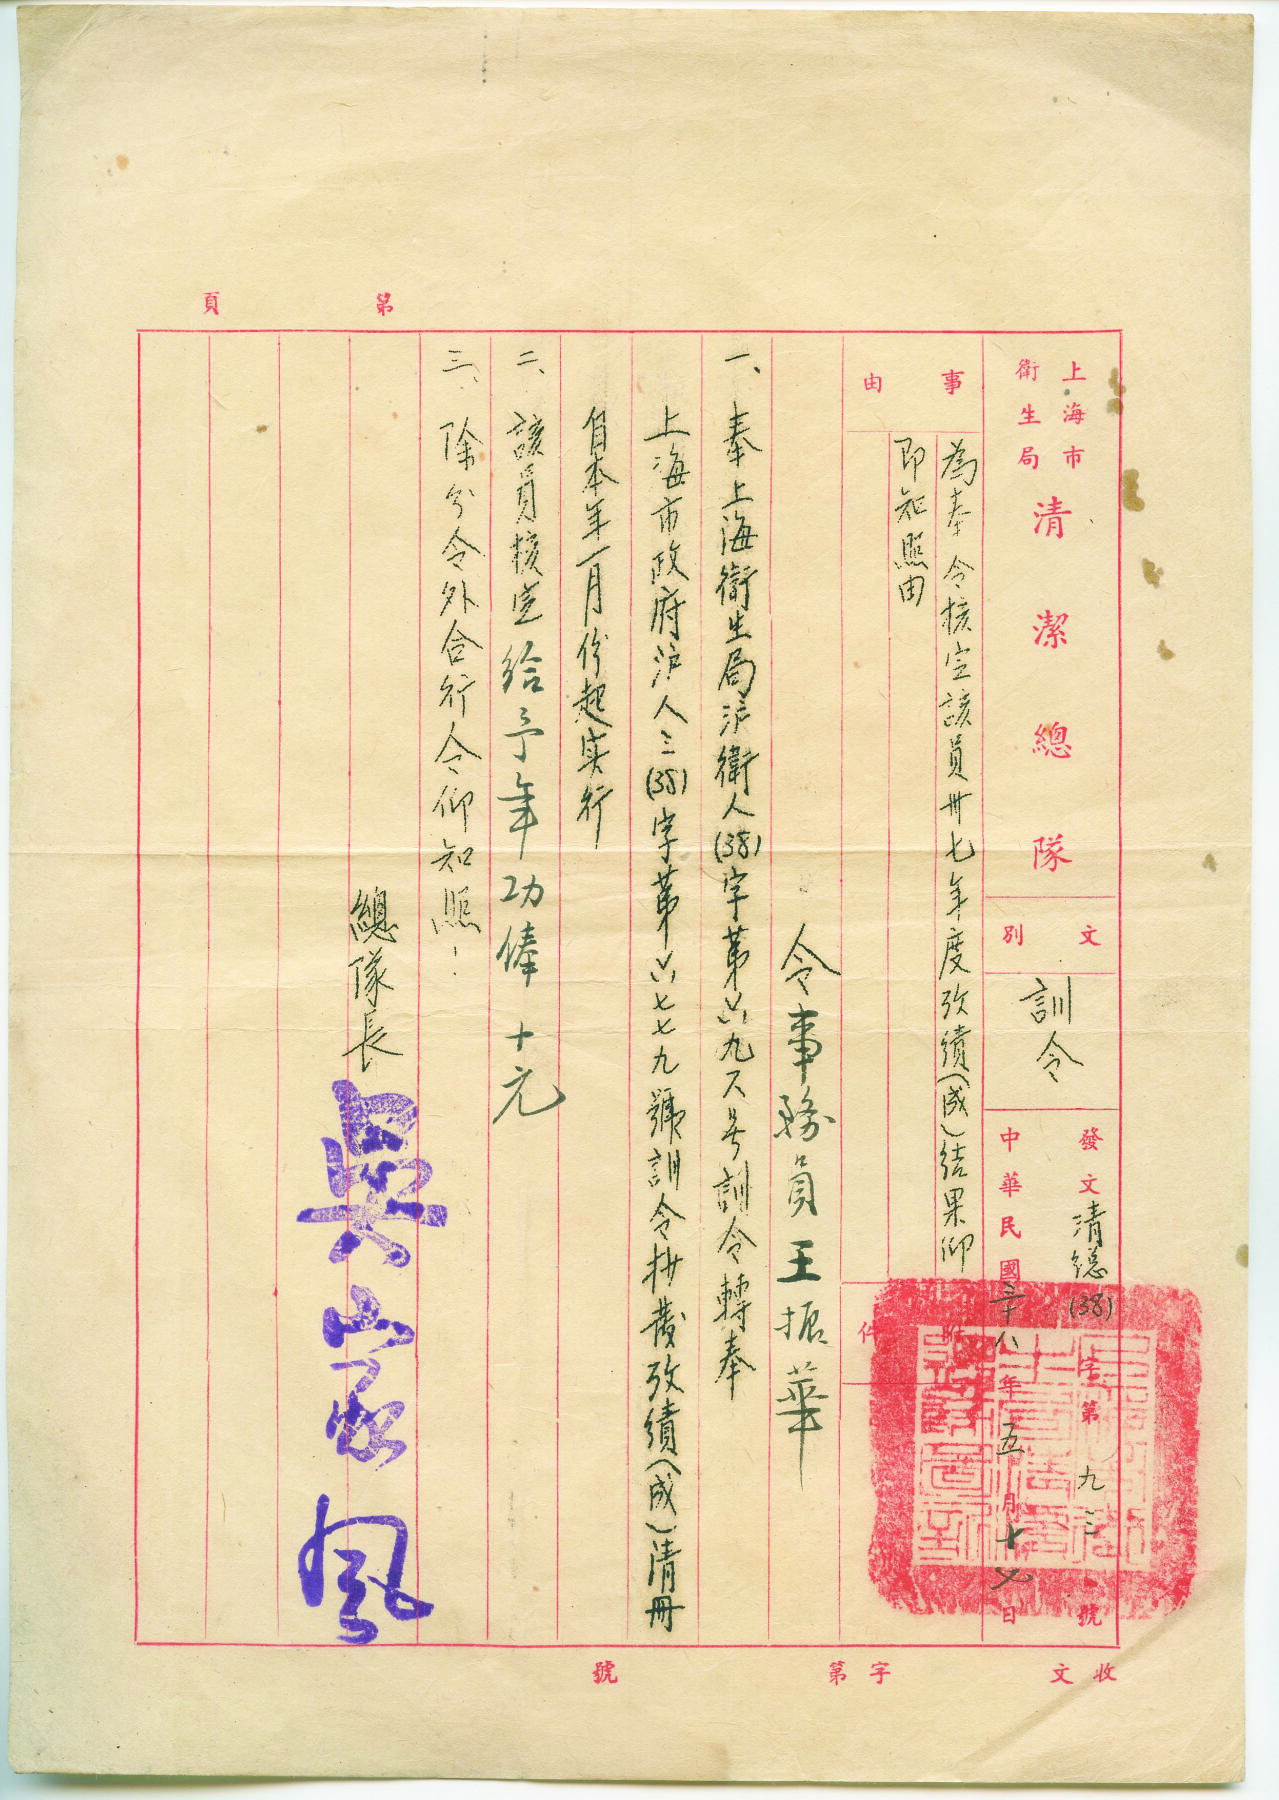 第 頁
上海市
衛生局
清潔總隊
文別
訓令
發文清總(38)字第九三號
中華民國三十八年五月十七日
附件
事由
為奉令核定該員卅七年度攷績(成)結果仰
即知照由
令事務員王振華
一、奉上海衛生局沪衛人(38)字第六九八号訓令轉奉
上海市政府沪人三(38)字第六七七九號訓令抄發攷績(成)清冊
自本年一月份起实行
二、該員核定給予年功俸十元
三、除分令外合行令仰知照!
總隊長
家風
收文 字第 號